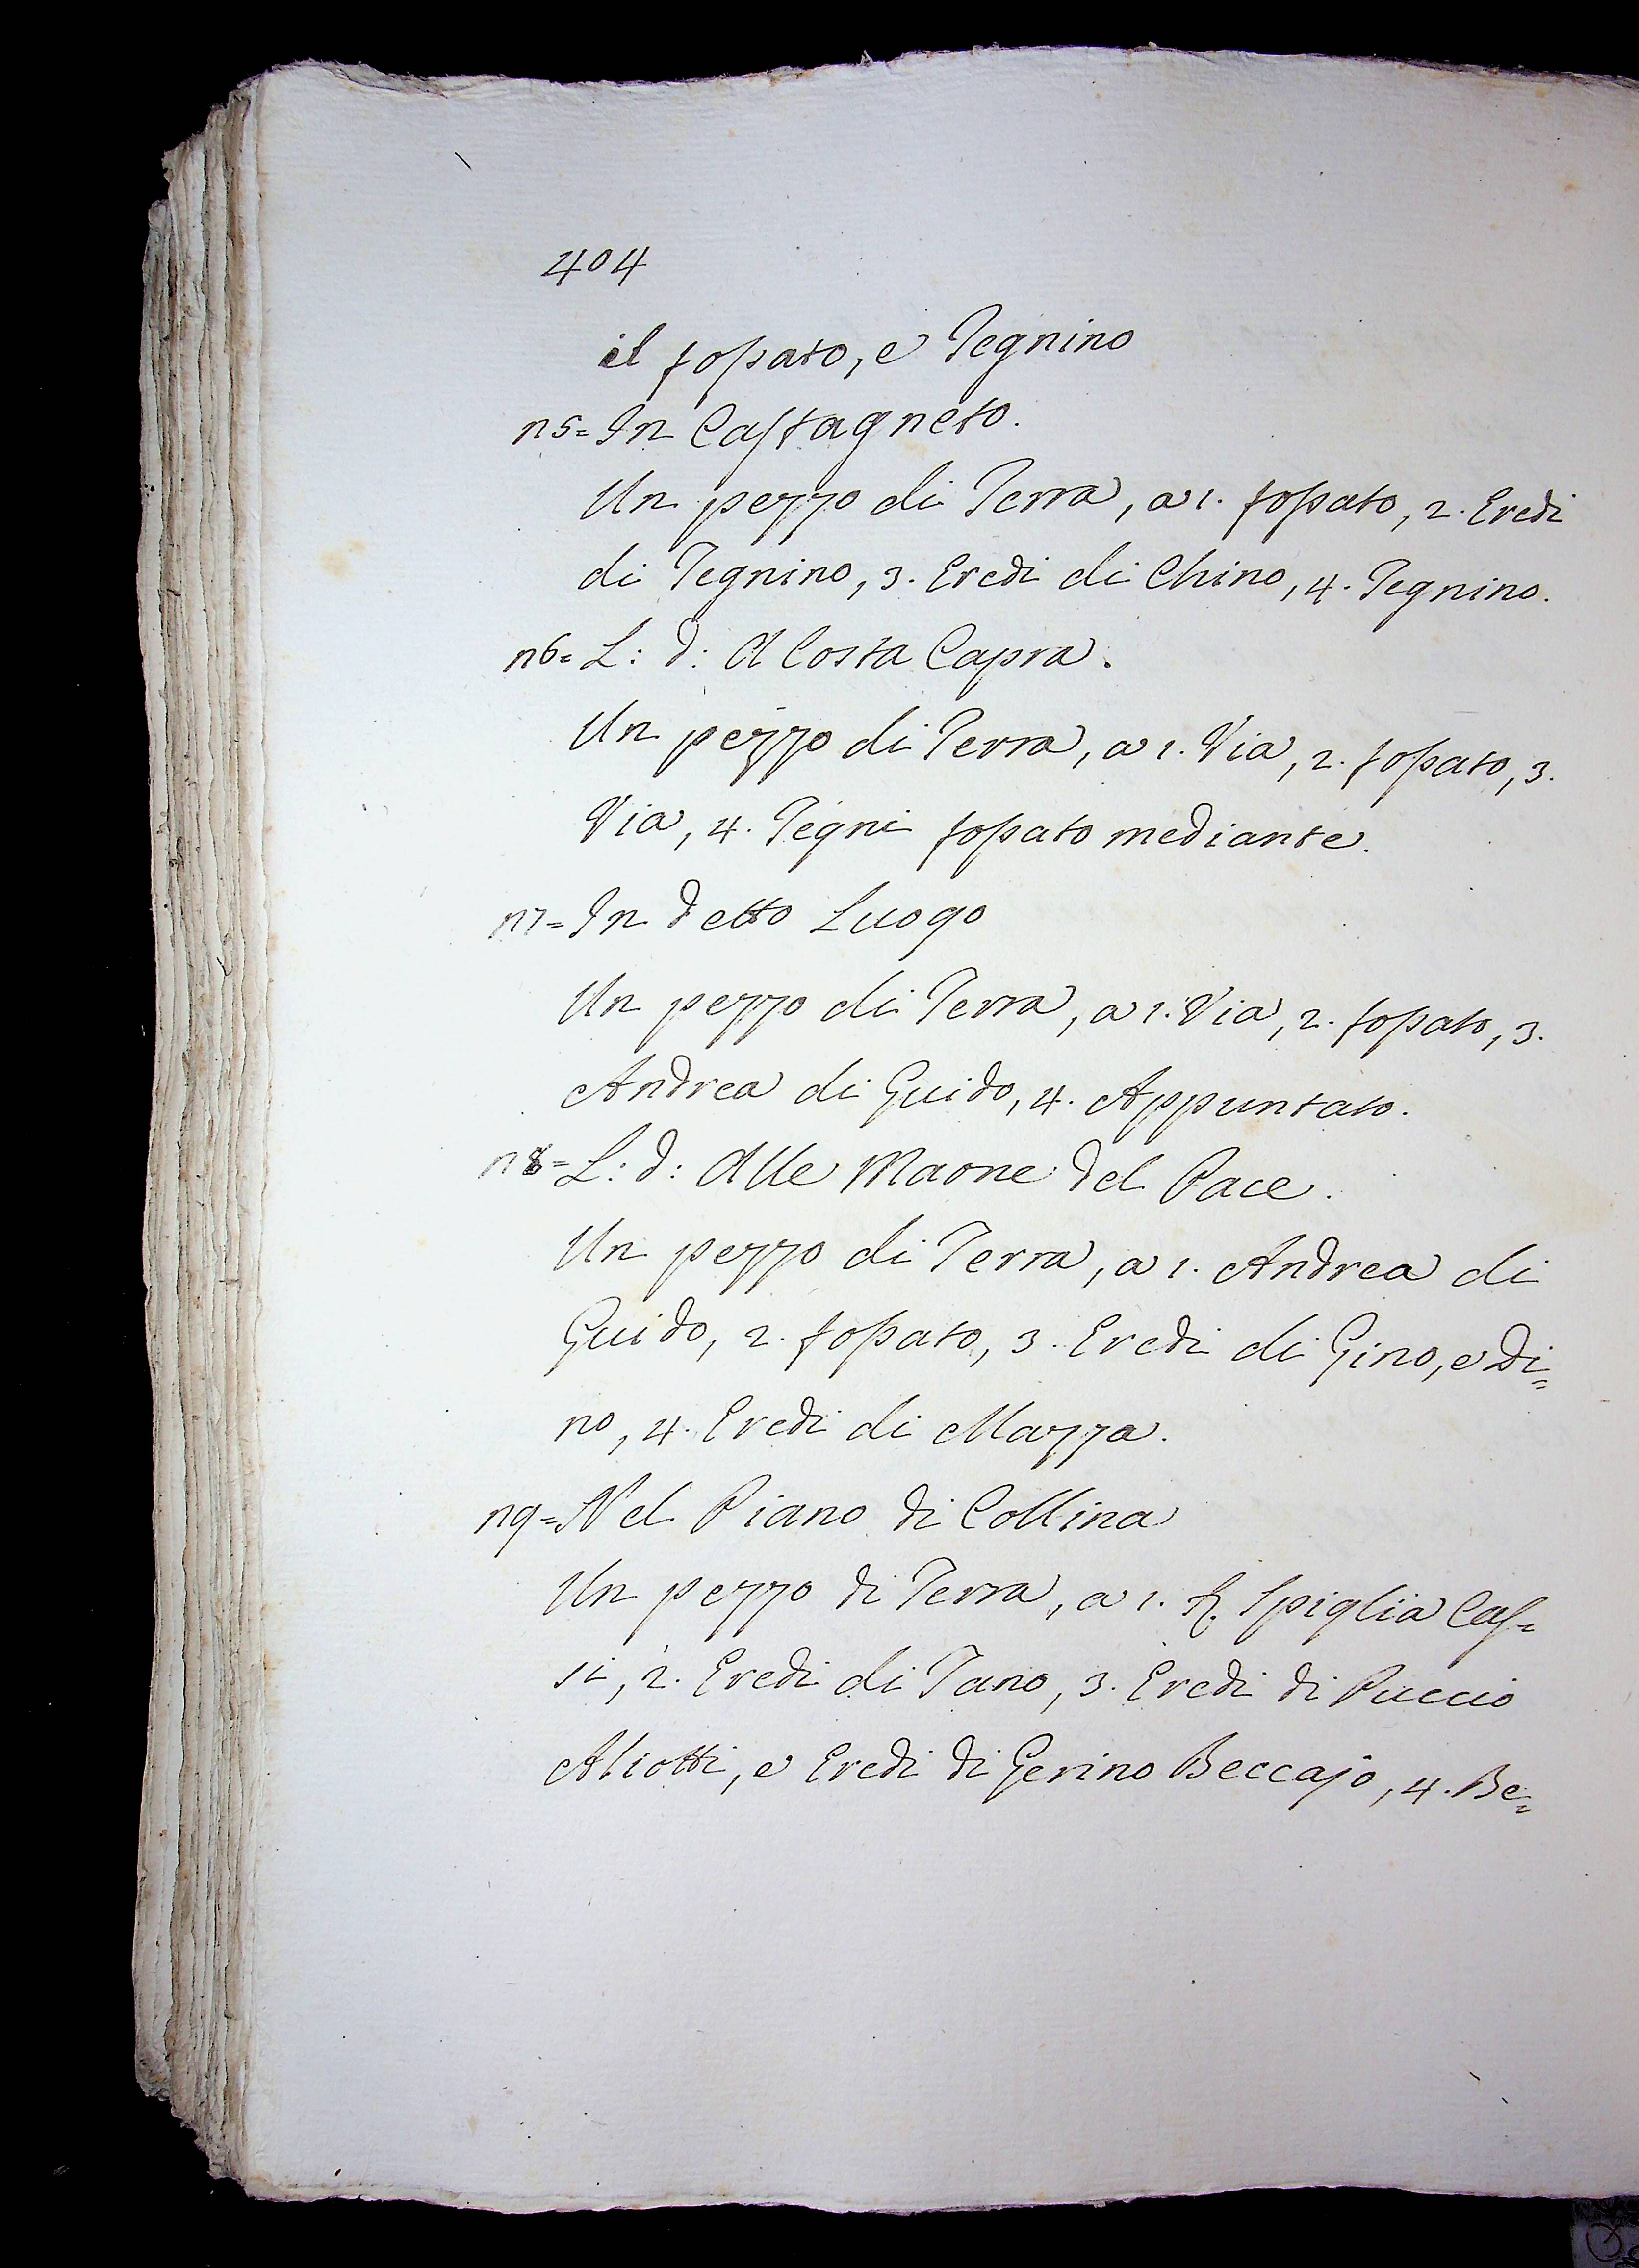 404
il fossato, e Tegnino
n5= In Castagneto.
Un pezzo di Terra, a 1. fossato, 2. Eredi
di Tegnino, 3. Eredi di Chino, 4. Tegnino.
n6= L: d: A Costa Capra.
Un pezzo di Terra, a 1. Via, 2. fossato, 3.
Via, 4. Tegni fossato mediante.
n7= In detto Luogo
Un pezzo di Terra, a 1. Via, 2. fossato, 3.
Andrea di Guido, 4. Appuntato.
n8= L: d: Alle Maone del Pace.
Un pezzo di Terra, a 1. Andrea di
Guido, 2. fossato, 3. Eredi di Gino, e Di=
no, 4. Eredi di Mazza.
n9= Nel Piano di Collina
Un pezzo di Terra, a 1. Spiglia Cas=
si, 2. Eredi di Tano, 3. Eredi di Puccio
Aliotti, e Eredi di Gerino Beccajo, 4. Be=